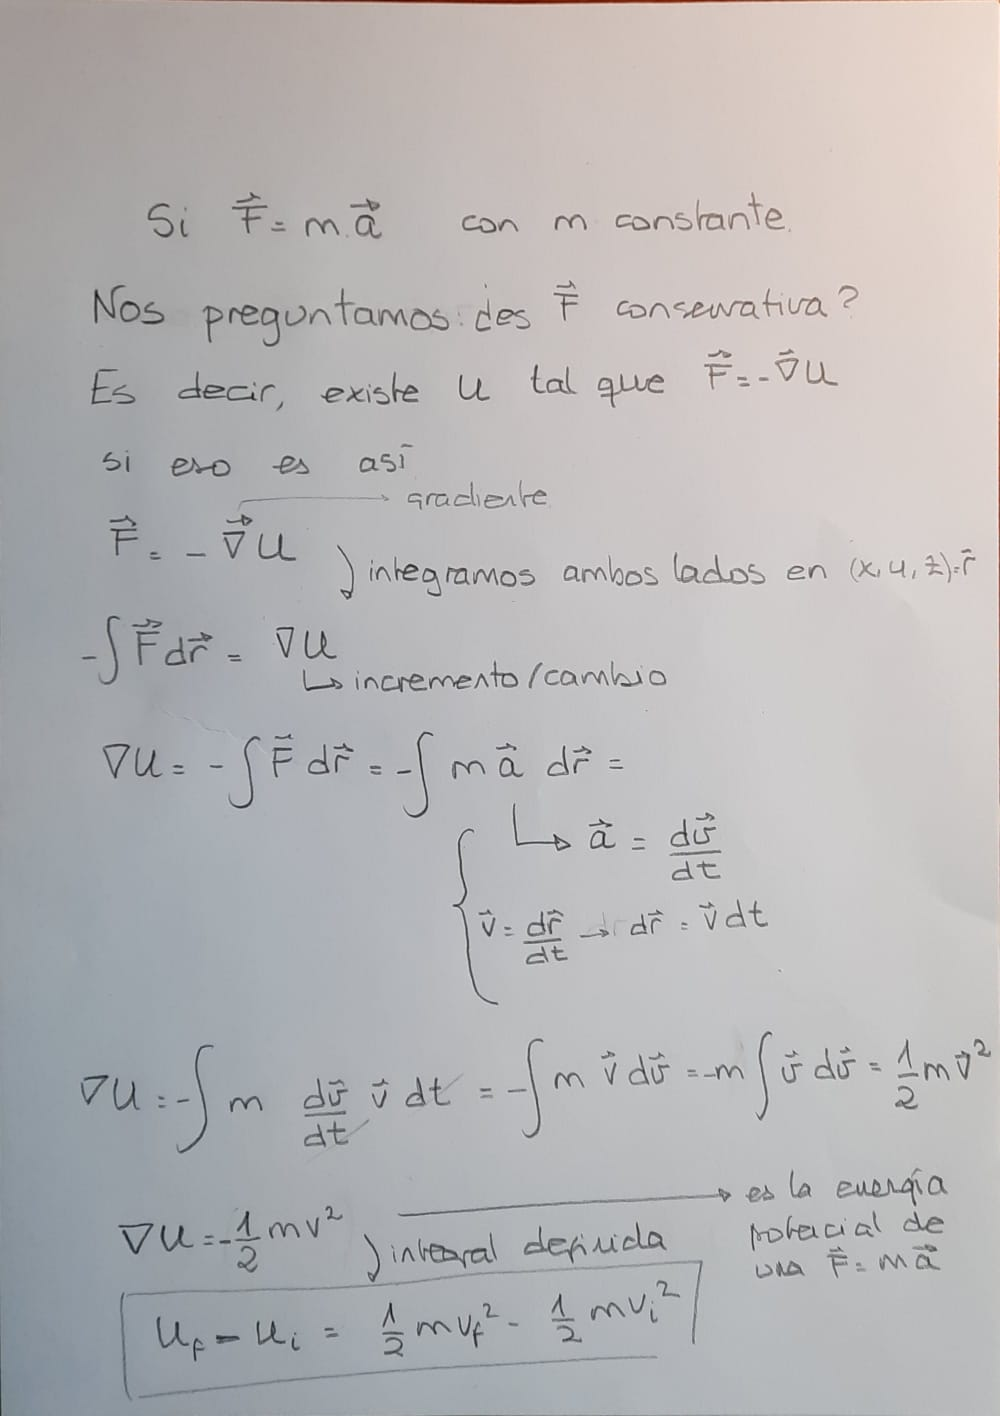 Si F⃗ = m.a⃗ con m constante.
Nos preguntamos: ¿es F⃗ conservativa?
Es decir, existe U tal que F⃗ = -∇⃗U
si eso es así
→ gradiente
F⃗ = -∇⃗U
integramos ambos lados en (x,y,z)=r⃗
-∫F⃗dr⃗ = ∇U
↳ incremento/cambio
∇U = -∫F⃗ dr⃗ = -∫ m a⃗ dr⃗ =
↳ a⃗ = dv⃗/dt
v⃗ = dr⃗/dt → dr⃗ = v⃗ dt
∇U = -∫ m dv⃗/dt v⃗ dt = -∫ m v⃗ dv⃗ = -m ∫ v⃗ dv⃗ = 1/2 m v⃗²
∇U = -1/2 mv²
integral definida
→ es la energía
potencial de
una F⃗ = ma⃗
U_f - U_i = 1/2 mv_f² - 1/2 mv_i²